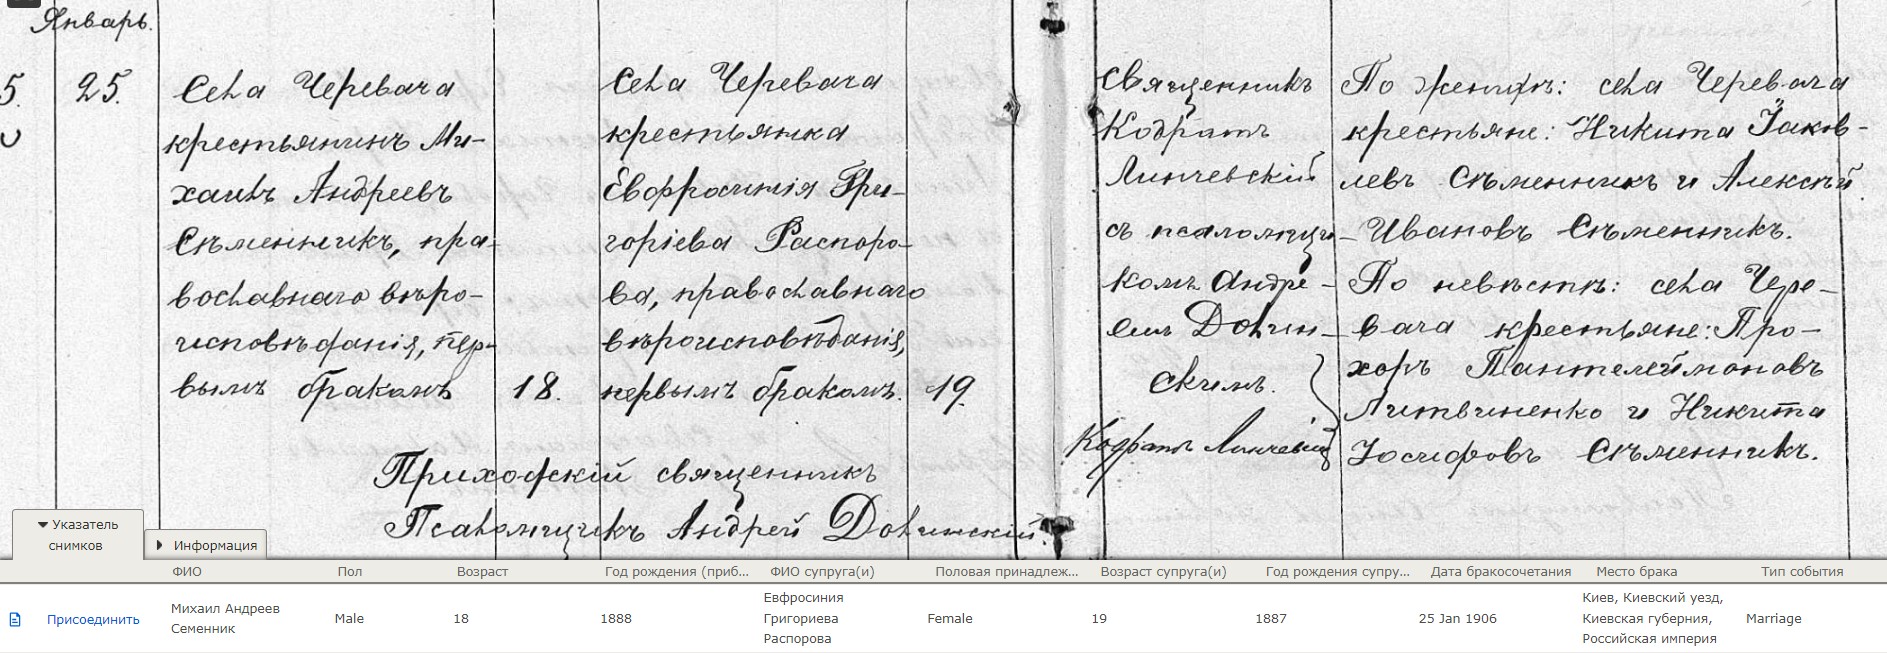 Январь.
5.
25.
Села Черевача
крестьянинъ Ми-
хаилъ Андреевъ
Сѣменникъ, пра-
вославнаго вѣро-
исповѣданія, пер-
вымъ бракомъ
18.
Села Черевача
крестьянка
Евфросинія Гри-
горіева Распоро-
ва, православнаго
вѣроисповѣданія,
первымъ бракомъ.
19.
Приходскій священникъ
Псаломщикъ Андрей Долинскій.
Священникъ
Кодратъ
Линчевскій
съ псаломщи-
комъ Андре-
емъ Долин-
скимъ.
Кодратъ Линчевскій
По женихѣ: села Черевача
крестьяне: Никита Іаков-
левъ Сѣменникъ и Алексѣй
Ивановъ Сѣменникъ.
По невѣстѣ: села Чере-
вача крестьяне: Про-
хоръ Пантелеймоновъ
Литвиненко и Никита
Іосифовъ Сѣменникъ.
Указатель
снимков
Информация
ФИО Пол Возраст Год рождения (приб... ФИО супруга(и) Половая принадлеж... Возраст супруга(и) Год рождения супру... Дата бракосочетания Место брака Тип события
Присоединить
Михаил Андреев
Семенник
Male
18
1888
Евфросиния
Григориева
Распорова
Female
19
1887
25 Jan 1906
Киев, Киевский уезд,
Киевская губерния,
Российская империя
Marriage